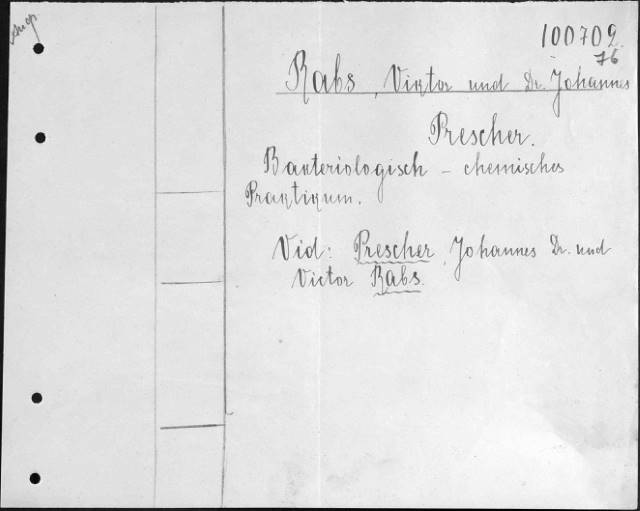 100702
76
Rabs, Viktor und Dr. Johannes
Prescher.
Bakteriologisch - chemisches
Praktikum.
Vid: Prescher, Johannes Dr. und
Victor Rabs.